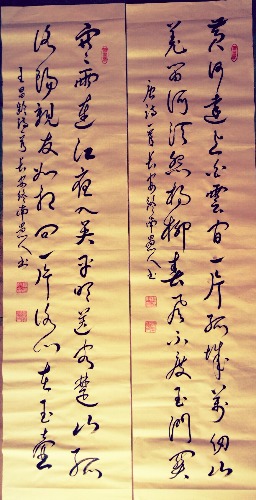 黄河远上白云间一片孤城万仞山
羌笛何须怨杨柳春风不度玉门关
唐诗一首
寒雨连江夜入吴平明送客楚山孤
洛阳亲友如相问一片冰心在玉壶
王昌龄诗